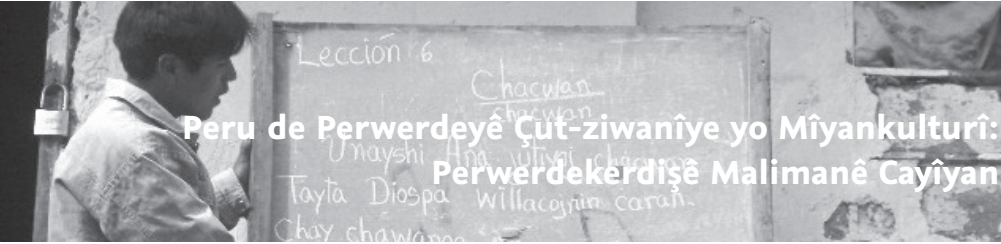 Lección 6
Chacwan
chacwan
Peru de Perwerdeyê Çut-ziwanîye yo Mîyankulturî:
Unayshi
Perwerdekerdişê Malimanê Cayîyan
Tayta Diospa willacojnin caran.
Chay